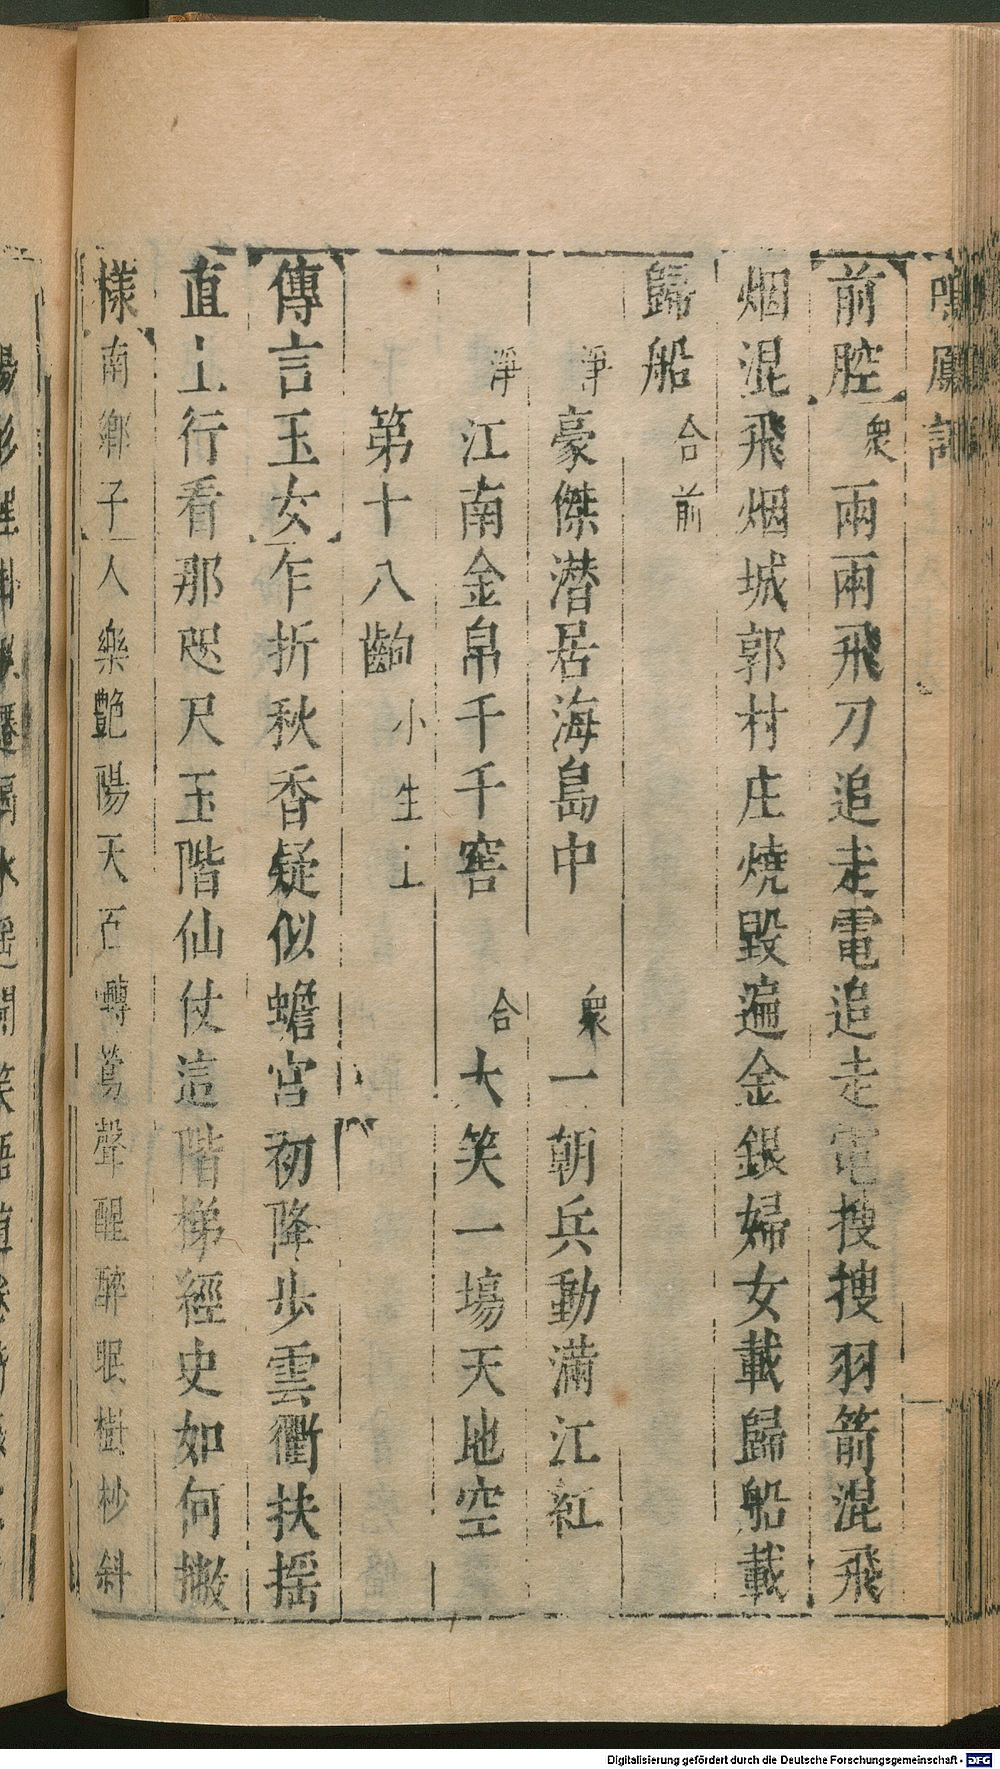 鳴鳳記
前腔 衆 兩兩飛刀追走電追走電搜搜羽箭混飛
烟混飛烟城郭村庄燒毀遍金銀婦女載歸船載
歸船 合前
淨 豪傑潛居海島中 衆 一朝兵動滿江紅
淨 江南金帛千千窖 合 大笑一場天地空
第十八齣 小生上
傳言玉女 乍折秋香疑似蟾宮初降步雲衢扶搖
直上行看那咫尺玉階仙仗這階梯經史如何撇
樣 南鄉子 人樂艷陽天百囀鶯聲醒醉眠樹杪斜
Digitalisierung gefördert durch die Deutsche Forschungsgemeinschaft - DFG